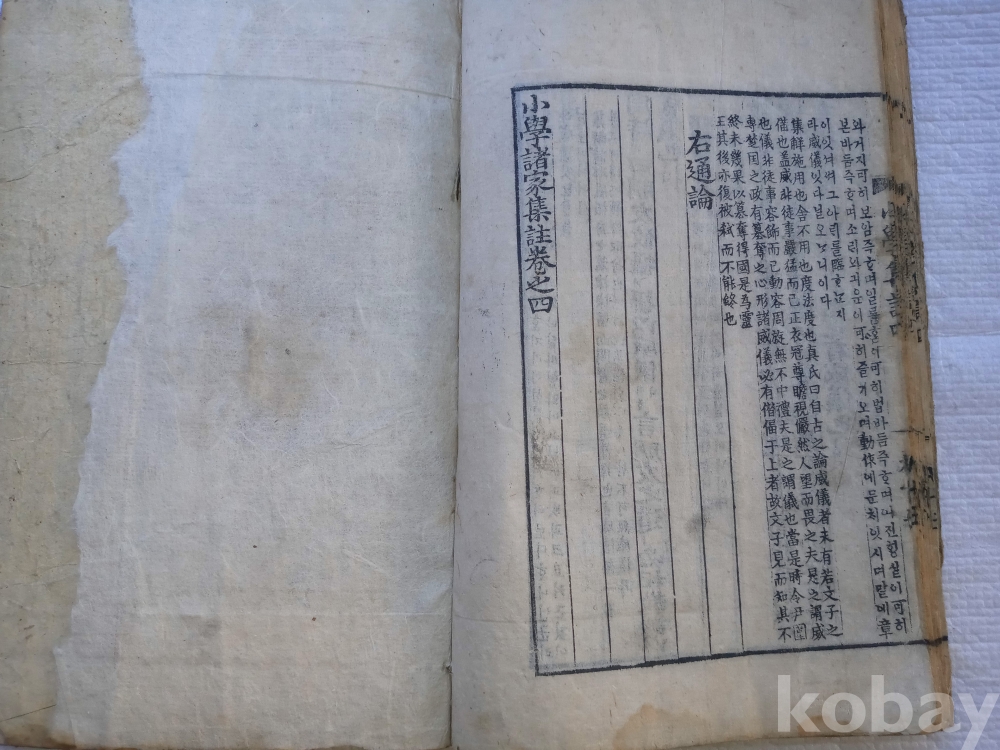 와거지可히보암즉ᄒᆞ며일홈이可히법바듬즉ᄒᆞ며진형실이可히
본바듬즉ᄒᆞ며소리와긔운이可히즐기오며動作에문치잇시며말에章
이잇셔쎠그아ᄅᆡ를臨ᄒᆞᄂᆞ지
라威儀잇다닐오ᄂᆞ니이다
集解施用也舍不用也度法度也真氏曰自古之論威儀者未有若文子之
備也盖威非徒事嚴猛而已正衣冠尊瞻視儼然人望而畏之夫是之謂威
也儀非徒事容飾而已動容周旋無不中禮夫是之謂儀也當是時令尹圍
專楚国之政有簒奪之心形諸威儀必有僭偪于上者故文子見而知其不
終未幾果以簒奪得國是爲靈
王其後亦復被弒而不能終也
右通論
小學諸家集註卷之四
kobay